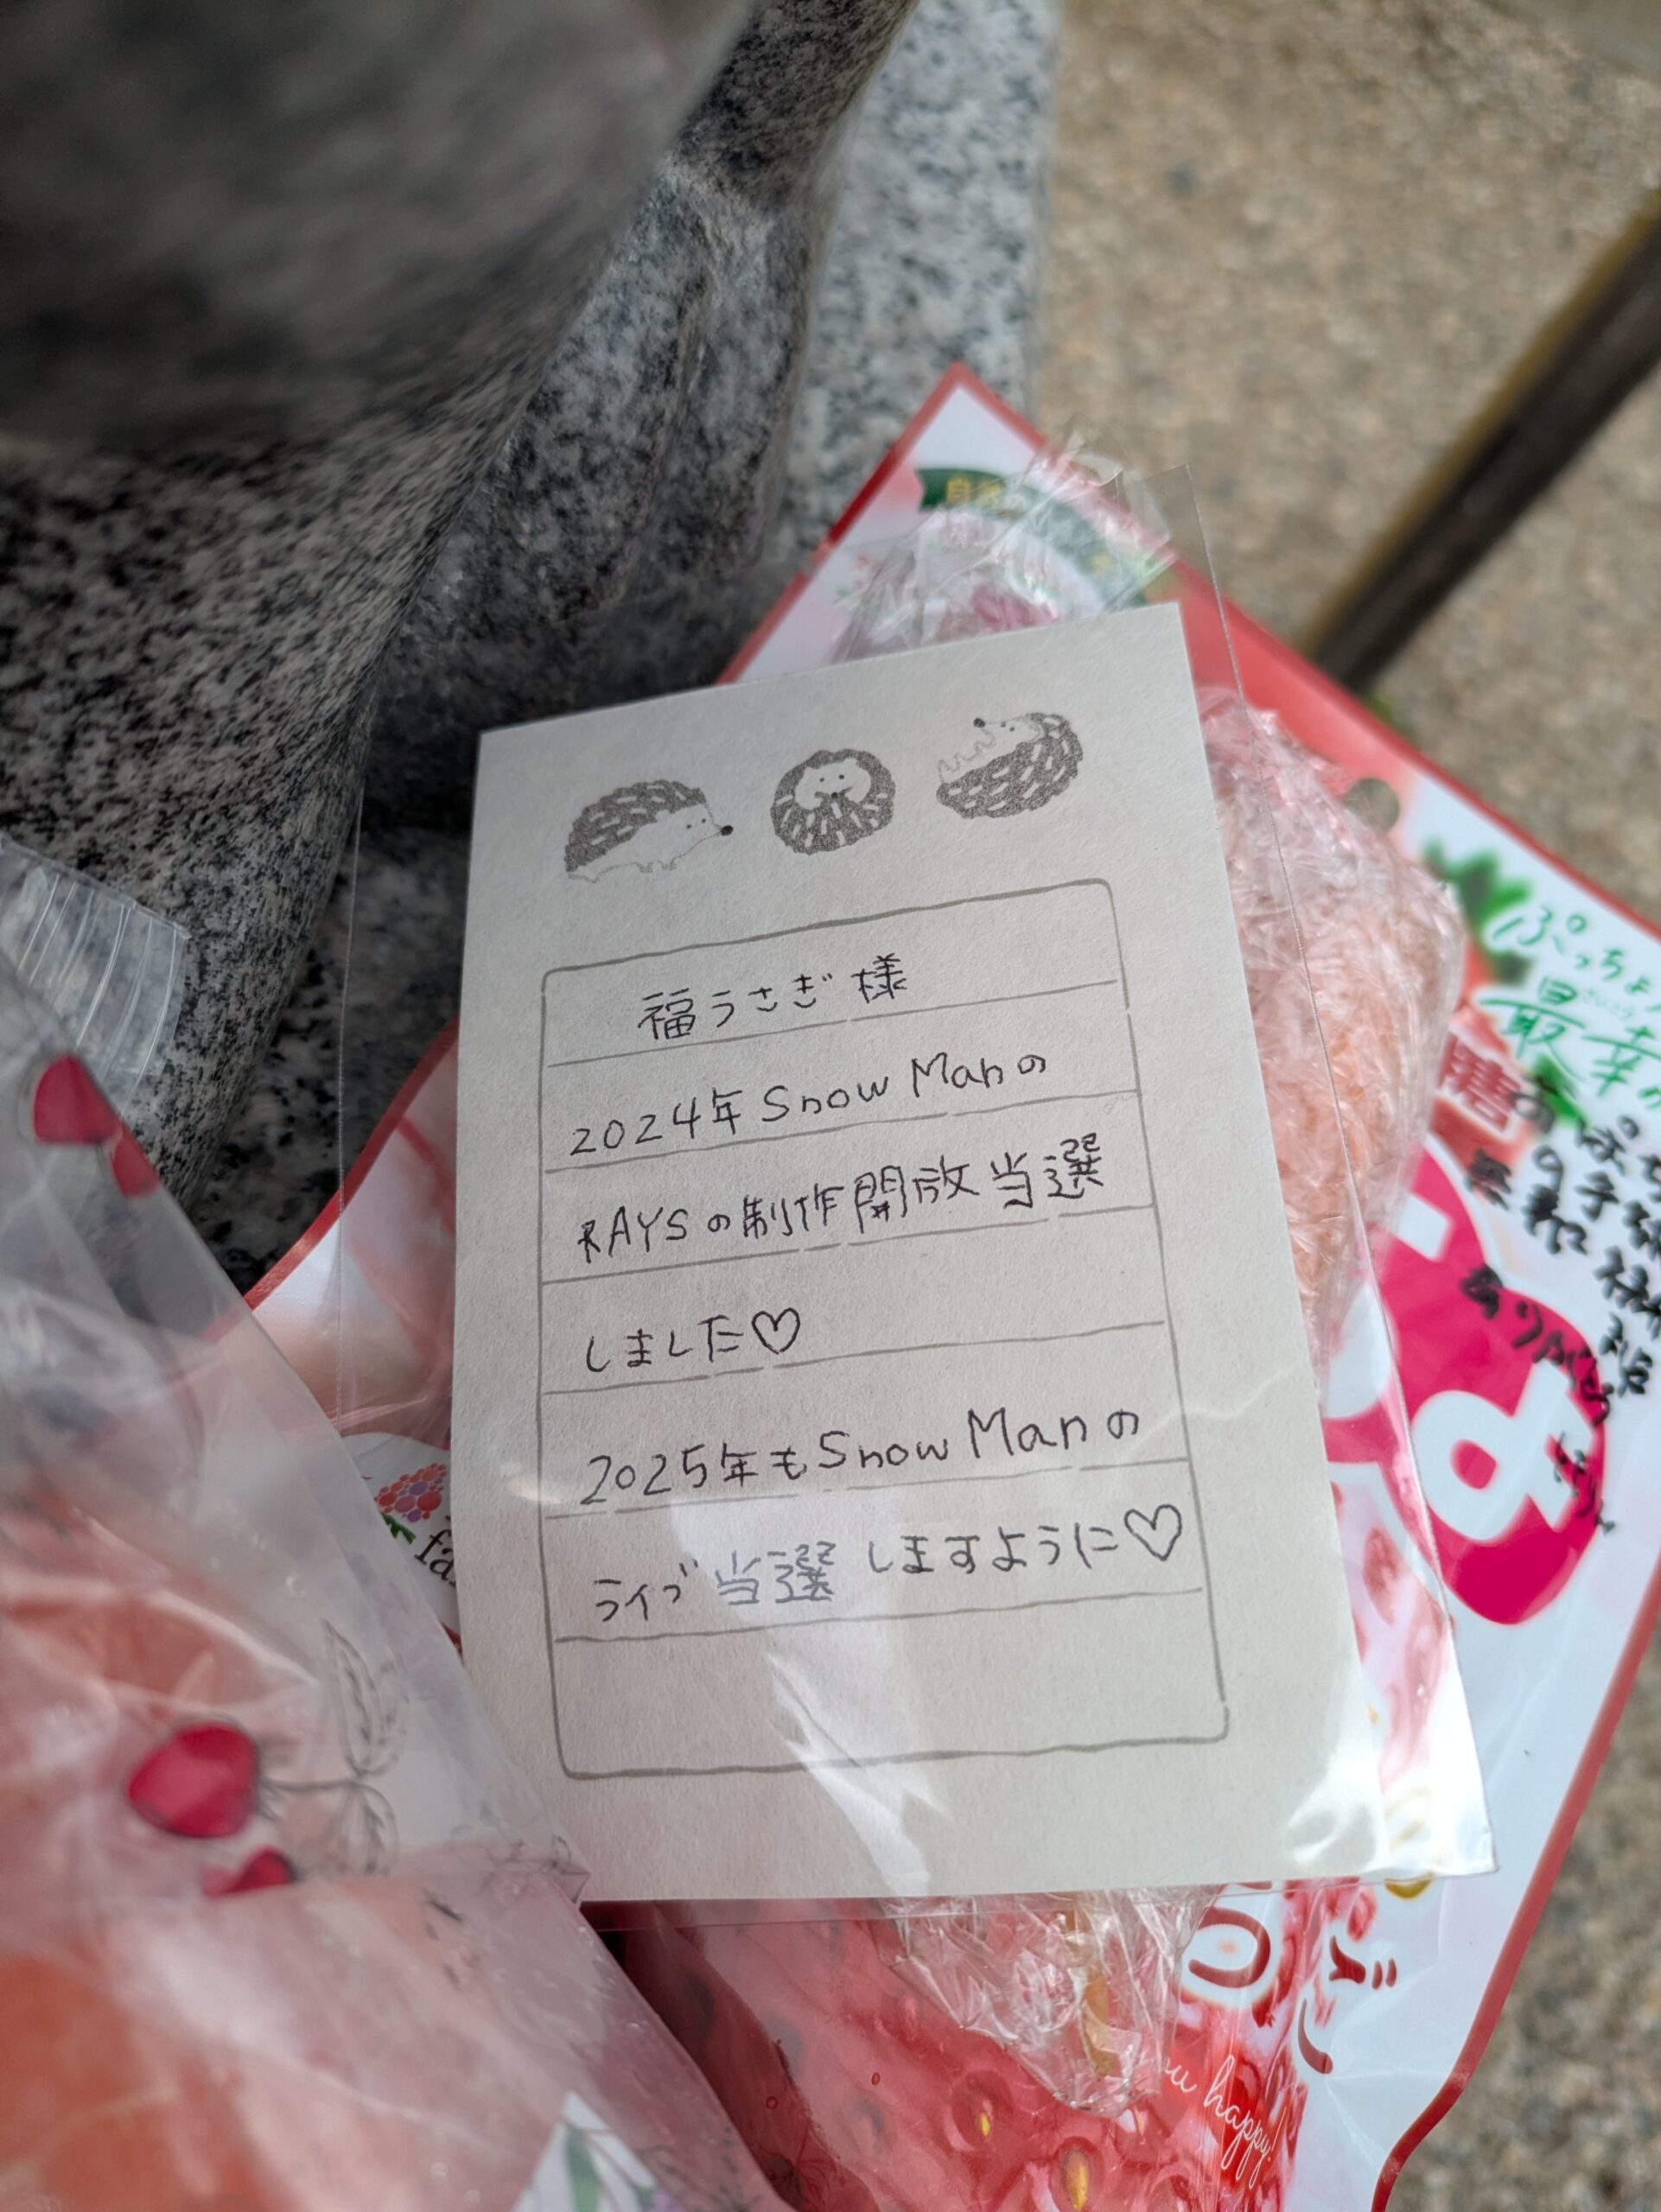 福うさぎ様
2024年 Snow Manの
RAYSの制作開放当選
しました♡
2025年もSnow Manの
ライブ当選しますように♡
ぷっちょ
最幸の
ありがとう
happy!